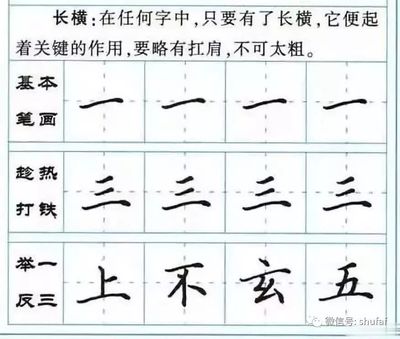 长横:在任何字中,只要有了长横,它便起
着关键的作用,要略有扛肩,不可太粗。
基本
笔画
一 一 一 一
趁热
打铁
三 三 三 三
举一
反三
上 不 玄 五
微信号: shufaf